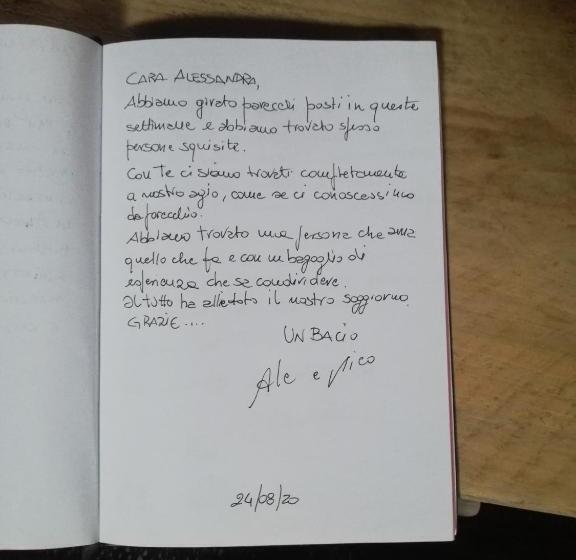 CARA ALESSANDRA,
Abbiamo girato parecchi posti in queste
settimane e abbiamo trovato spesso
persone squisite.
Con Te ci siamo trovati completamente
a nostro agio, come se ci conoscessimo
da parecchio.
Abbiamo trovato una persona che ama
quello che fa e con un bagaglio di
esperienza che sa condividere.
Il tutto ha allietato il nostro soggiorno.
GRAZIE....
UN BACIO
Ale e Nico
24/08/20